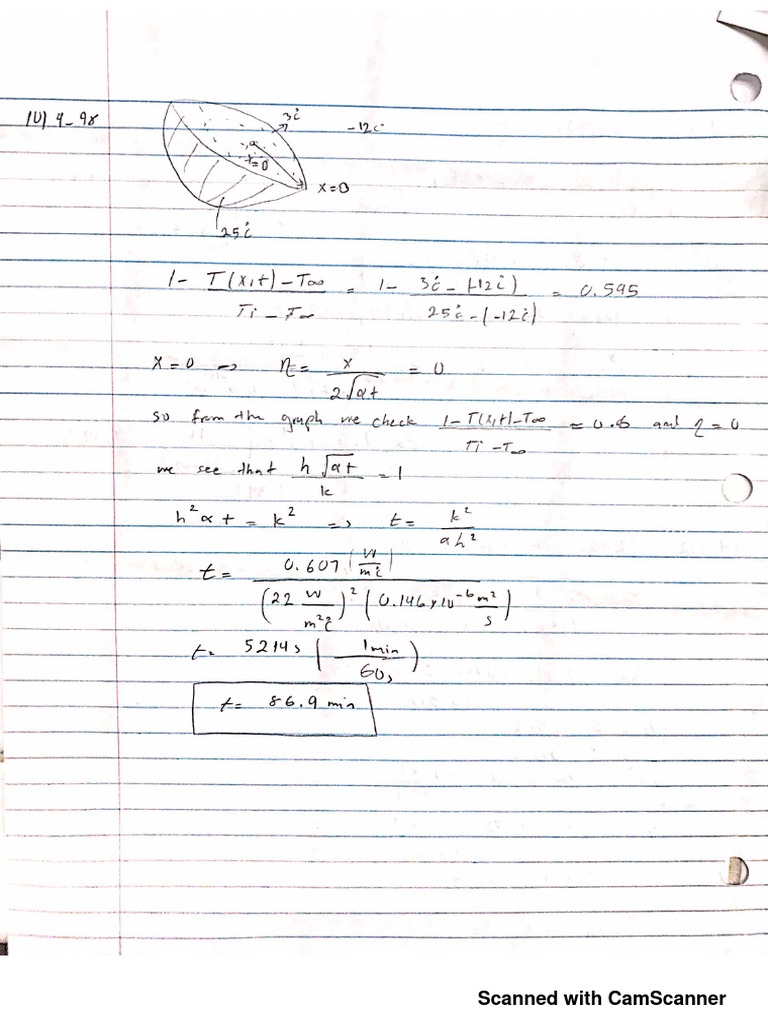 10) 4-98
3c°
-12c°
x=0
x=0
25c°
1- T(x,t)-T∞ / Ti-T∞ = 1- 3c°-(-12c°) / 25c°-(-12c°) = 0.595
x=0 => η= x / 2√αt = 0
so from the graph we check 1-T(x,t)-T∞ / Ti-T∞ = 0.6 and η=0
we see that h√αt / k = 1
h²αt = k² => t= k² / αh²
t= 0.607 (W/mc°) / (22 W/m²c°)² (0.146x10⁻⁶ m²/s)
t= 5214s (1min / 60s)
t= 86.9 min
Scanned with CamScanner